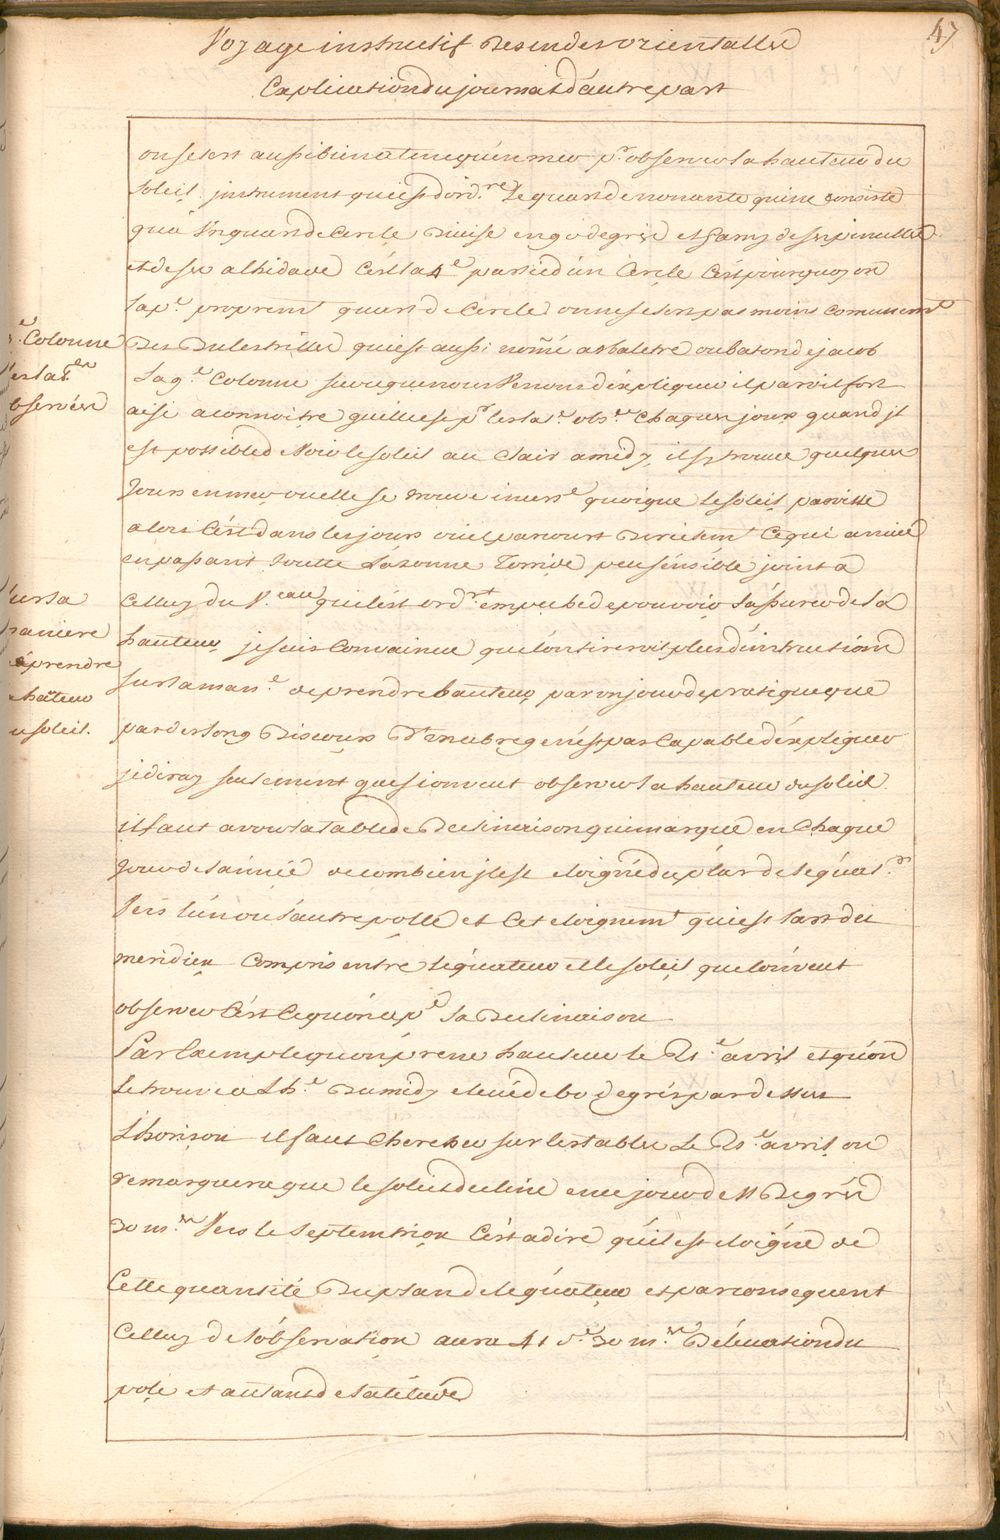 47
Voyage instructif Des indes orientalles
Explication du journal d'autre part
on se sert aussi bien a terre qu'en mer pr observer la hauteur du
soleil instrument qui est d'ordre Le quart de nonante qui ne consiste
qu'a un quart de Cercle Divisé en 90 degrés et garny de ses pinulles
et de son alhidade C'est la 4e partie d'un Cercle C'est pourquoy on
lap.e proprem.t quart de Cercle on ne se sert pas moins comunem.t
Des Balestrilles qui est aussi nom̃é arbaletre ou baton de jacob
e Colonne
La 9.e Colonne que nous Venons d'expliquer il paroit fort
est la at.de
aisé a connoitre qu'elle est pr les lat.e obs.ée Chaque jours quand jl
observée
est possible d'avoir le soleil au Clair a midy, il s'y trouve quelques
Jours en mer ou elle se trouve quoique le soleil paroisse
alors C'est dans les jours ou il parcourt Directem.t Ce qui arrive
en passant toutte La zonne Torride peu sensible joint a
Celluy du V.eau qui l'est ord.rt empeché de pouvoir s'assurer de la
sur la
hauteur, je suis Convaincu que l'on tireroit plus d'instructions
maniere
sur la man.e de prendre hauteur par un jour de pratique que
de prendre
hauteur
par des long Discours D'un abregé n'est pas Capable d'expliquer
du soleil.
je diray seulement que si on veut observer la hauteur du soleil
il faut avoir la table de Declinaison qui marque en Chaque
Jour de l'année de combien jl est eloigné du plan de l'equat.r
Vers l'un ou l'autre polle et Cet eloignem.t qui est l'arc du
meridien Compris entre l'équateur et le soleil que l'on veut
observer C'est Ce qu'on ap.e la Declinaison
Par Exemple qu'on prene hauteur le 21.e avril et qu'on
Le trouve a L'h.e Du midy elevé de 60 degrés par dessus
L'horison il faut Chercher sur les tables Le 21.e avril on
remarquera que le soleil decline en ce jour de 11 Degrés
30 m.es Vers le septemtrion C'est a dire qu'il est eloigné de
Cette quantité Du plan de l'équateur et par consequent
Celluy de l'observation aura 41 d.e 30 m.es D'élevation du
pole et autant de latitude